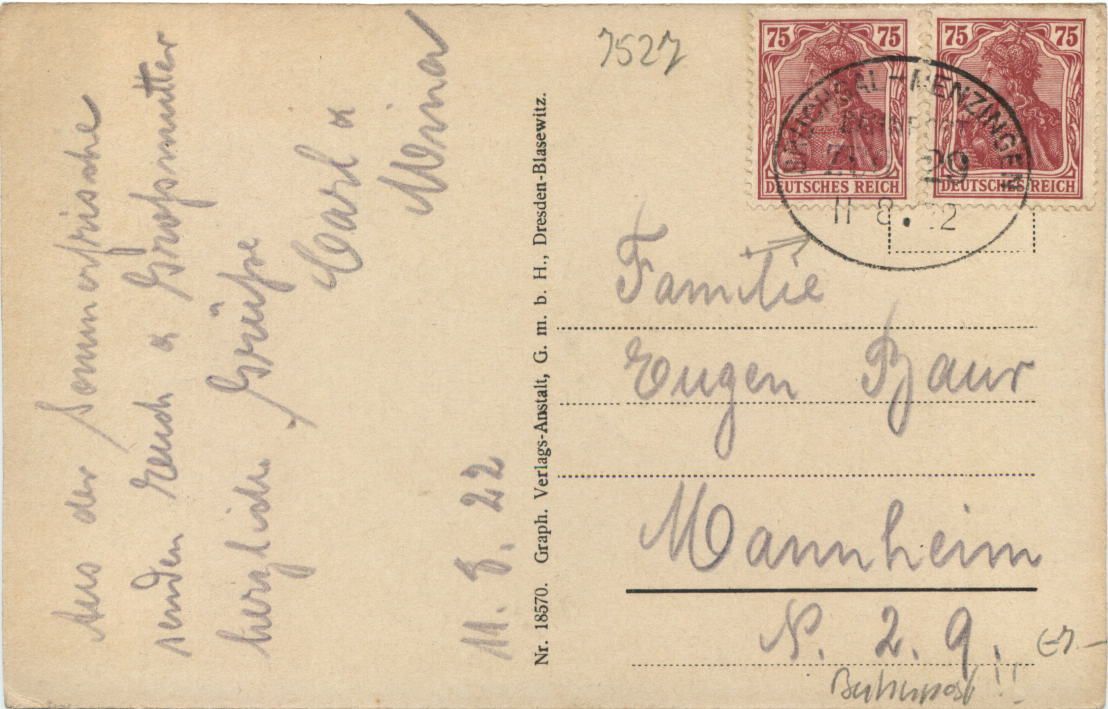 Aus der Sommerfrische
senden Euch u Großmutter
herzliche Grüße
Carl u
Mina
11. 8. 22
Nr. 18570. Graph. Verlags-Anstalt, G. m. b. H., Dresden-Blasewitz.
7527
75 75
DEUTSCHES REICH
75 75
DEUTSCHES REICH
BRUCHSAL-MENZINGEN
BAHNPOST
29
11 8. 22
Familie
Eugen Baur
Mannheim
N. 2. 9.
Bahnpost!!